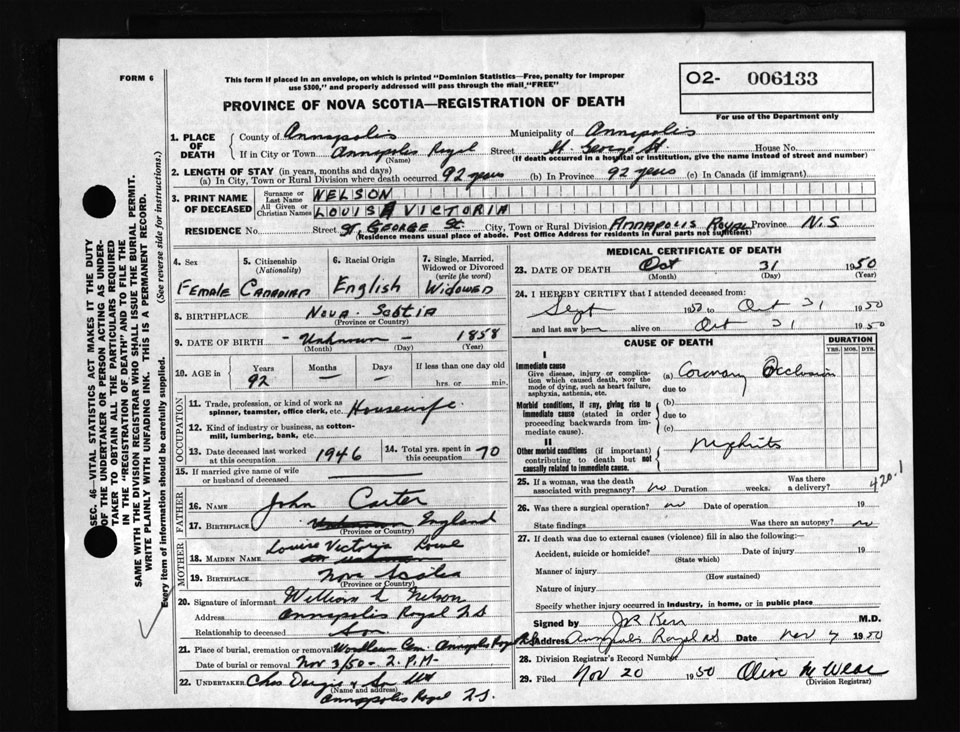 FORM 6
This form if placed in an envelope, on which is printed "Dominion Statistics—Free, penalty for improper
use $300," and properly addressed will pass through the mail, "FREE"
PROVINCE OF NOVA SCOTIA—REGISTRATION OF DEATH
O2- 006133
For use of the Department only
1. PLACE OF DEATH County of Annapolis Municipality of Annapolis
If in City or Town Annapolis Royal Street St. George St House No.
(Name) (If death occurred in a hospital or institution, give the name instead of street and number)
2. LENGTH OF STAY (in years, months and days)
(a) In City, Town or Rural Division where death occurred 92 years (b) In Province 92 years (c) In Canada (if immigrant)
3. PRINT NAME OF DECEASED Surname or Last Name NELSON
All Given or Christian Names LOUISA VICTORIA
RESIDENCE No. Street ST. GEORGE ST. City, Town or Rural Division ANNAPOLIS ROYAL Province N.S
(Residence means usual place of abode. Post Office Address for residents in rural parts not sufficient)
4. Sex 5. Citizenship (Nationality) 6. Racial Origin 7. Single, Married, Widowed or Divorced (write the word)
FEMALE CANADIAN English WIDOWED
8. BIRTHPLACE NOVA SCOTIA
(Province or Country)
9. DATE OF BIRTH - Unknown - 1858
(Month) (Day) (Year)
10. AGE in Years Months Days If less than one day
92 — — hrs. or min.
OCCUPATION
11. Trade, profession, or kind of work as spinner, teamster, office clerk, etc. Housewife
12. Kind of industry or business, as cotton-mill, lumbering, bank, etc.
13. Date deceased last worked at this occupation 1946 14. Total yrs. spent in this occupation 70
15. If married give name of wife or husband of deceased
FATHER
16. NAME John Carter
17. BIRTHPLACE Unknown England
(Province or Country)
MOTHER
18. MAIDEN NAME Louise Victoria Rowe
19. BIRTHPLACE Nova Scotia
(Province or Country)
20. Signature of informant William L Nelson
Address Annapolis Royal N.S
Relationship to deceased Son
21. Place of burial, cremation or removal Woodlawn Cem. Annapolis Royal N.S.
Date of burial or removal Nov 3/50 - 2. P.M-
22. UNDERTAKER Chas Dargie & Son
(Name and address)
Annapolis Royal N.S.
MEDICAL CERTIFICATE OF DEATH
23. DATE OF DEATH Oct 31 1950
(Month) (Day) (Year)
24. I HEREBY CERTIFY that I attended deceased from:
Sept 1950 to Oct 31 1950
and last saw her alive on Oct 31 1950
CAUSE OF DEATH DURATION
YRS. MOS. DYS.
I
Immediate cause
Give disease, injury or complication which caused death, NOT the mode of dying, such as heart failure, asphyxia, asthenia, etc.
(a) Coronary Occlusion
due to
Morbid conditions, if any, giving rise to immediate cause (stated in order proceeding backwards from immediate cause).
(b)
due to
(c)
II
Other morbid conditions (if important) contributing to death but not causally related to immediate cause.
Nephritis
420.1
25. If a woman, was the death associated with pregnancy? no Duration weeks. Was there a delivery?
26. Was there a surgical operation? no Date of operation 19
State findings Was there an autopsy? no
27. If death was due to external causes (violence) fill in also the following:—
Accident, suicide or homicide? Date of injury 19
(State which)
Manner of injury
(How sustained)
Nature of injury
Specify whether injury occurred in industry, in home, or in public place
Signed by JR Kerr M.D.
Address Annapolis Royal NS Date Nov 7 1950
28. Division Registrar's Record Number
29. Filed Nov 20 1950 Olive M
(Division Registrar)
SEC. 46—VITAL STATISTICS ACT MAKES IT THE DUTY
OF THE UNDERTAKER OR PERSON ACTING AS UNDER-
TAKER TO OBTAIN ALL THE PARTICULARS REQUIRED
IN THE "REGISTRATION OF DEATH" AND TO FILE THE
SAME WITH THE DIVISION REGISTRAR WHO SHALL ISSUE THE BURIAL PERMIT.
WRITE PLAINLY WITH UNFADING INK. THIS IS A PERMANENT RECORD.
Every item of information should be carefully supplied. (See reverse side for instructions.)